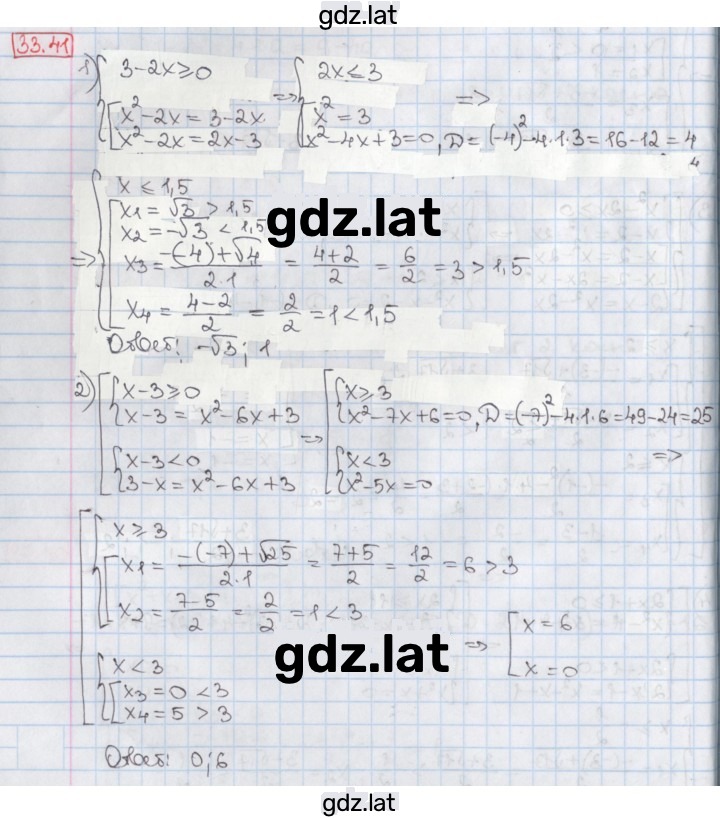 gdz.lat
33.41
1) { 3-2x≥0
[ x²-2x=3-2x
x²-2x=2x-3
=> { 2x≤3
[ x²=3
x²-4x+3=0, D=(-4)²-4·1·3=16-12=4
4
=>
=> { x≤1,5
[ x1=√3 > 1,5
x2=-√3 < 1,5
x3= (-(-4)+√4)/(2·1) = (4+2)/2 = 6/2 = 3 > 1,5
x4= (4-2)/2 = 2/2 = 1 < 1,5
gdz.lat
Ответ: -√3; 1
2) [ { x-3≥0
x-3=x²-6x+3
{ x-3<0
3-x=x²-6x+3
=> [ { x≥3
x²-7x+6=0, D=(-7)²-4·1·6=49-24=25
{ x<3
x²-5x=0
=>
[ { x≥3
[ x1= (-(-7)+√25)/(2·1) = (7+5)/2 = 12/2 = 6 > 3
x2= (7-5)/2 = 2/2 = 1 < 3
{ x<3
[ x3=0 < 3
x4=5 > 3
=> [ x=6
x=0
gdz.lat
Ответ: 0; 6
gdz.lat